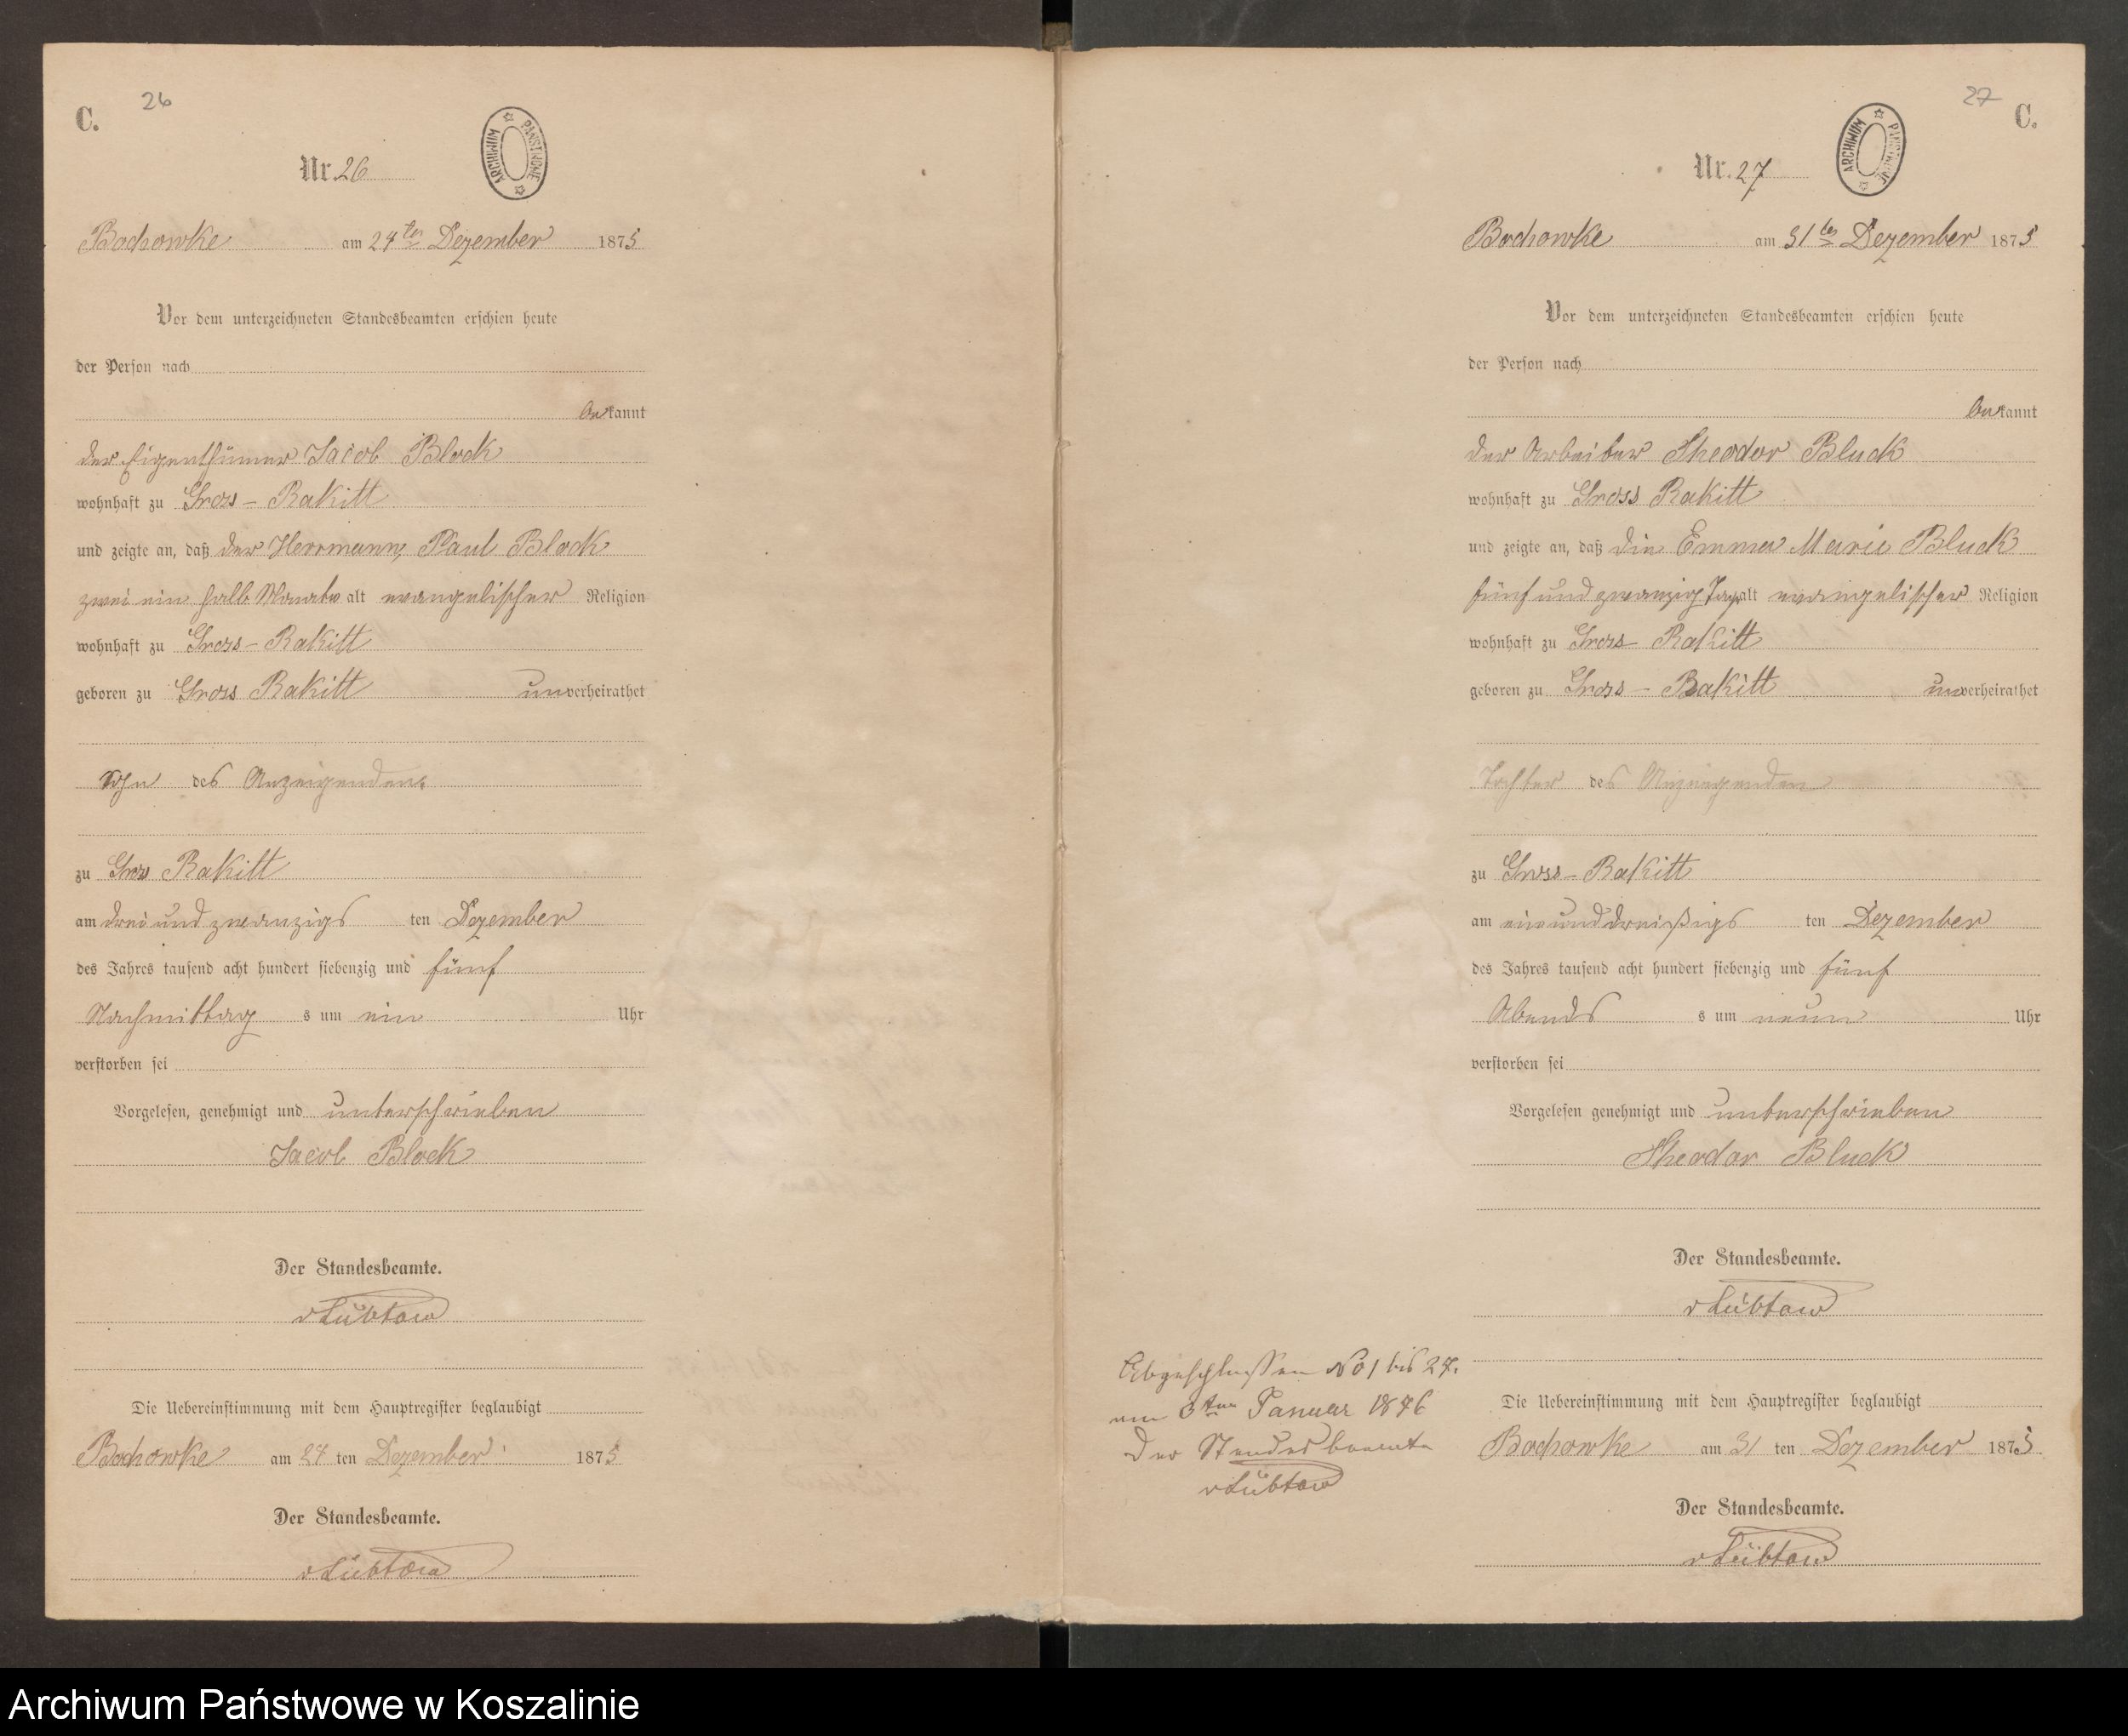 26
C.
ARCHIWUM PAŃSTWOWE
Nr. 26
Bochowke am 24ten Dezember 1875
Vor dem unterzeichneten Standesbeamten erschien heute
der Person nach
bekannt
der Eigenthümer Jacob Block
wohnhaft zu Gross-Rakitt
und zeigte an, daß der Herrmann, Paul Block
zwei ein halb Monate alt evangelischer Religion
wohnhaft zu Gross-Rakitt
geboren zu Gross Rakitt unverheirathet
Sohn des Anzeigenden
zu Gross Rakitt
am dreiundzwanzigs ten Dezember
des Jahres tausend acht hundert siebenzig und fünf
Nachmittag s um ein Uhr
verstorben sei
Vorgelesen, genehmigt und unterschrieben
Jacob Block
Der Standesbeamte.
vLübtow
Die Uebereinstimmung mit dem Hauptregister beglaubigt
Bochowke am 24 ten Dezember 1875
Der Standesbeamte.
vLübtow
27
C.
ARCHIWUM PAŃSTWOWE
Nr. 27
Bochowke am 31ten Dezember 1875
Vor dem unterzeichneten Standesbeamten erschien heute
der Person nach
bekannt
der Arbeiter Theodor Bluck
wohnhaft zu Gross Rakitt
und zeigte an, daß die Emma Marie Bluck
fünfundzwanzig Tage alt evangelischer Religion
wohnhaft zu Gross-Rakitt
geboren zu Gross-Rakitt unverheirathet
Tochter des Anzeigenden
zu Gross-Rakitt
am einunddreißigs ten Dezember
des Jahres tausend acht hundert siebenzig und fünf
Abends s um neun Uhr
verstorben sei
Vorgelesen genehmigt und unterschrieben
Theodor Bluck
Der Standesbeamte.
vLübtow
Die Uebereinstimmung mit dem Hauptregister beglaubigt
Bochowke am 31 ten Dezember 1875
Der Standesbeamte.
vLübtow
Abgeschlossen No 1 bis 27.
am 3ten Januar 1876
Der Standesbeamte
vLübtow
Archiwum Państwowe w Koszalinie